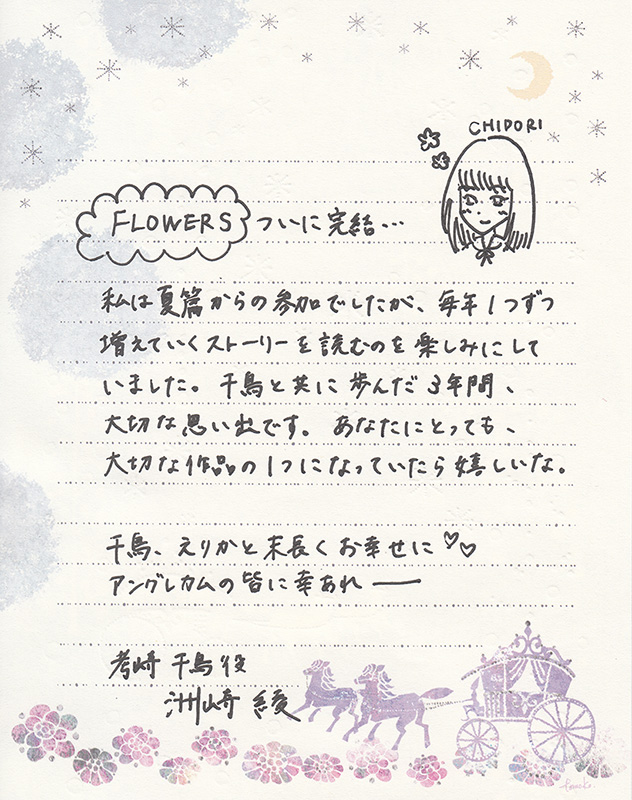 CHIDORI
FLOWERS ついに完結…
私は夏篇からの参加でしたが、毎年1つずつ
増えていくストーリーを読むのを楽しみにして
いました。千鳥と共に歩んだ3年間、
大切な思い出です。あなたにとっても、
大切な作品の1つになっていたら嬉しいな。
千鳥、えりかと末長くお幸せに♡♡
アングレカムの皆に幸あれ——
考崎 千鳥役
洲崎 綾